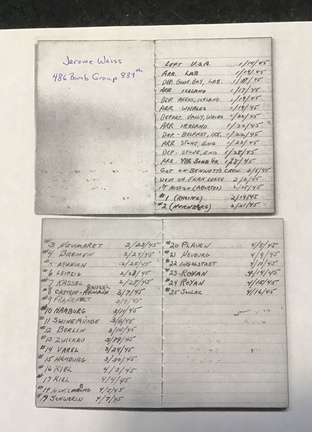 Jerome Weiss
486 Bomb Group 834th
LEFT U.S.A. 1/14/45
ARR LAB 1/19/45
DEP. GOOSE BAY, LAB.
ARR ICELAND 1/19/45
DEP. ICELAND 1/19/45
ARR WHALES 1/19/45
DEPART. VALLY, WALES 1/20/45
ARR IRELAND 1/20/45
DEP - BELFAST, IRE. 1/22/45
ARR STONE, ENG 1/23/45
DEP. STONE, ENG 1/25/45
ARR. 486 BOMB GR. 1/25/45
GOT ON BENNETT'S CREW 2/5/45
WENT ON LEAVE
1st MISSION (ABORTED) 2/15/45
#1 2/19/45
#2 (NURNBERG) 2/21/45
#3 NEUMARKT 2/23/45
#4 BREMEN 2/24/45
#5 MUNICH 2/25/45
#6 LEIPZIG 2/27/45
#7 KASSEL 2/28/45
#8 3/7/45
#9 FRANKFURT 3/9/45
#10 HARBURG 3/11/45
#11 SWINEMÜNDE 3/12/45
#12 BERLIN 3/18/45
#13 ZWICKAU 3/19/45
#14 VAREL 3/24/45
#15 HAMBURG 3/30/45
#16 KIEL 4/3/45
#17 KIEL 4/4/45
#18 4/5/45
#19 SCHWERIN 4/7/45
#20 PLAUEN 4/5/45
#21 NEUBURG 4/9/45
#22 INGOLSTADT 4/11/45
#23 ROYAN 4/14/45
#24 ROYAN 4/15/45
#25 SOULAC 4/16/45